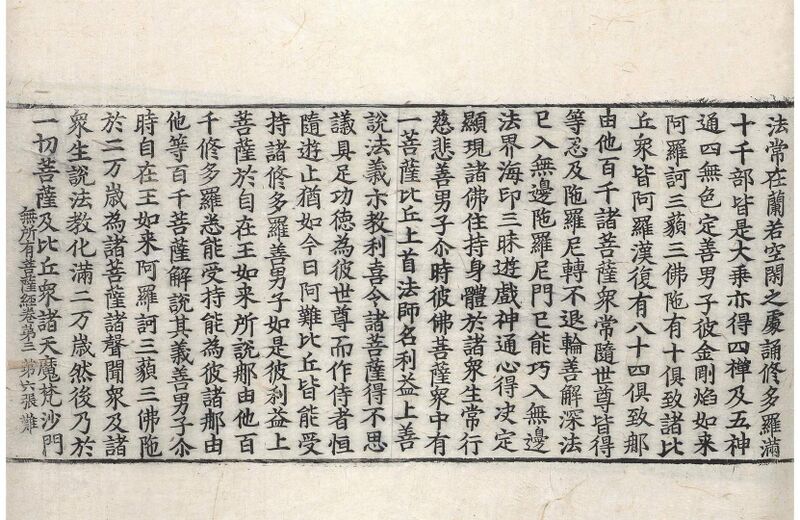 法常在蘭若空閑之處誦修多羅滿
十千部皆是大乘亦得四禪及五神
通四無色定善男子彼金剛焰如来
阿羅訶三藐三佛陁有十俱致諸比
丘衆皆阿羅漢復有八十四俱致那
由他百千諸菩薩衆常隨世尊皆得
等忍及陁羅尼轉不退輪善解深法
已入無邊陁羅尼門已能巧入無邊
法界海印三昧遊戲神通心得决定
顯現諸佛住持身體於諸衆生常行
慈悲善男子尒時彼佛菩薩衆中有
一菩薩比丘上首法師名利益上善
說法義亦教利喜令諸菩薩得不思
議具足功德為彼世尊而作侍者恒
隨遊止猶如今日阿難比丘皆能受
持諸修多羅善男子如是彼利益上
菩薩於自在王如来所說那由他百
千修多羅悉能受持能為彼諸那由
他等百千菩薩解說其義善男子尒
時自在王如来阿羅訶三藐三佛陁
於二万歲為諸菩薩諸聲聞衆及諸
衆生說法教化滿二万歲然後乃於
無所有菩薩經卷第三 第六張 難
一切菩薩及比丘衆諸天魔梵沙門